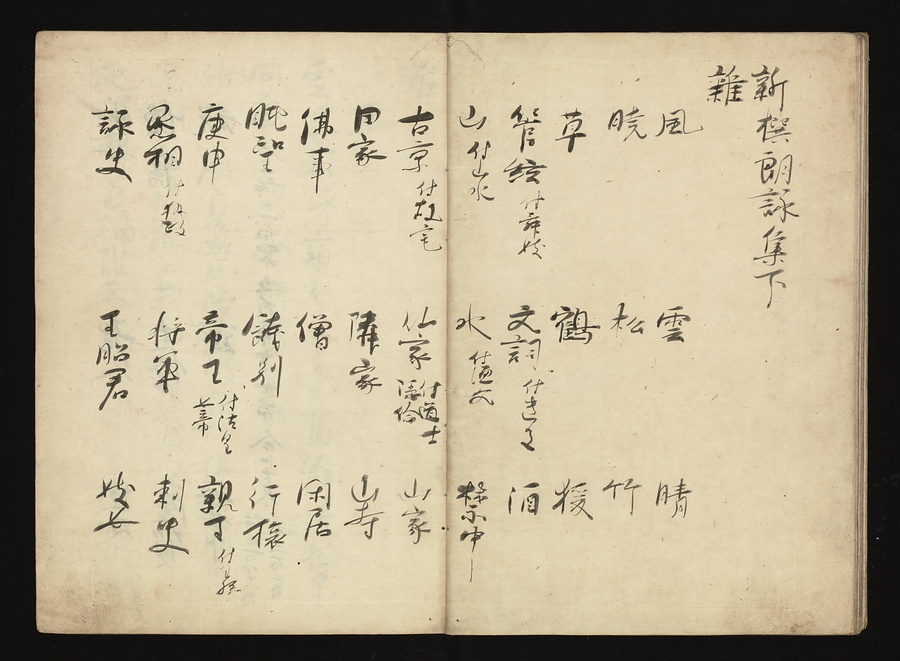 新撰朗詠集下
雑
風 雲 晴
暁 松 竹
草 鶴 猿
管絃付舞妓 文詞付遺文 酒
山付山水 水付漁父 禁中
古京付故宅 仙家付道士隠倫 山家
田家 隣家 山寺
佛事 僧 閑居
眺望 餞別 行旅
庚申 帝王付法皇 親王付王孫
丞相付執政 将軍 刺史
詠史 王昭君 妓女